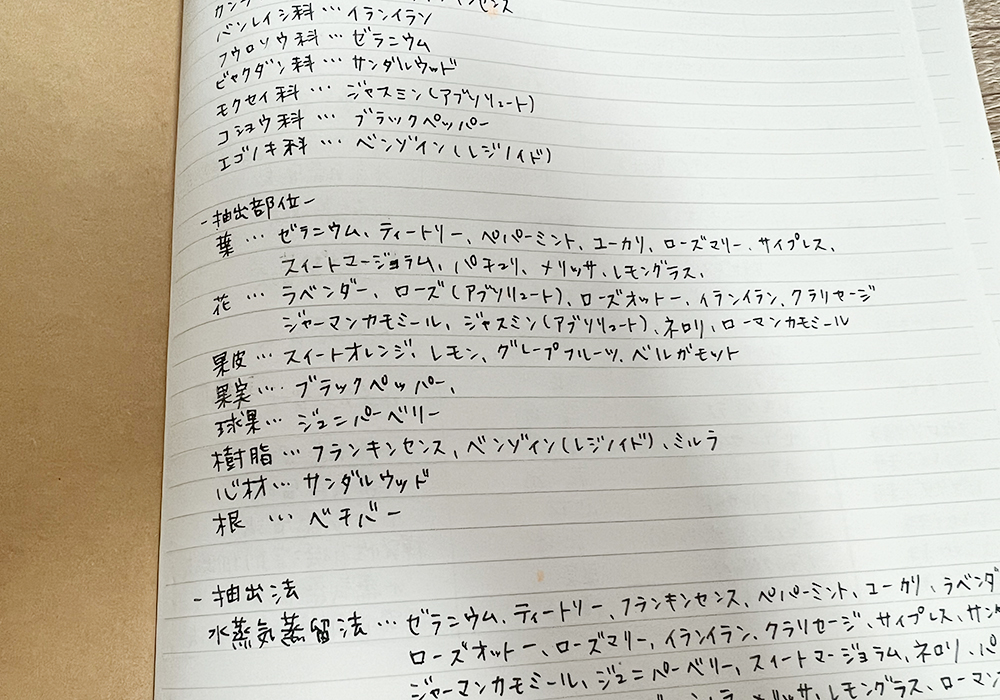 バンレイシ科… イランイラン
フウロソウ科… ゼラニウム
ビャクダン科… サンダルウッド
モクセイ科 … ジャスミン(アブソリュート)
コショウ科 … ブラックペッパー
エゴノキ科 … ベンゾイン(レジノイド)
-抽出部位-
葉 … ゼラニウム、ティートリー、ペパーミント、ユーカリ、ローズマリー、サイプレス、
スイートマージョラム、パチュリ、メリッサ、レモングラス、
花 … ラベンダー、ローズ(アブソリュート)、ローズオットー、イランイラン、クラリセージ
ジャーマンカモミール、ジャスミン(アブソリュート)、ネロリ、ローマンカモミール
果皮… スイートオレンジ、レモン、グレープフルーツ、ベルガモット
果実… ブラックペッパー、
球果… ジュニパーベリー
樹脂… フランキンセンス、ベンゾイン(レジノイド)、ミルラ
心材… サンダルウッド
根 … ベチバー
-抽出法
水蒸気蒸留法… ゼラニウム、ティートリー、フランキンセンス、ペパーミント、ユーカリ、ラベンダ
ローズオットー、ローズマリー、イランイラン、クラリセージ、サイプレス、サン
ジャーマンカモミール、ジュニパーベリー、スイートマージョラム、ネロリ、パ
メリッサ、レモングラス、ローマン